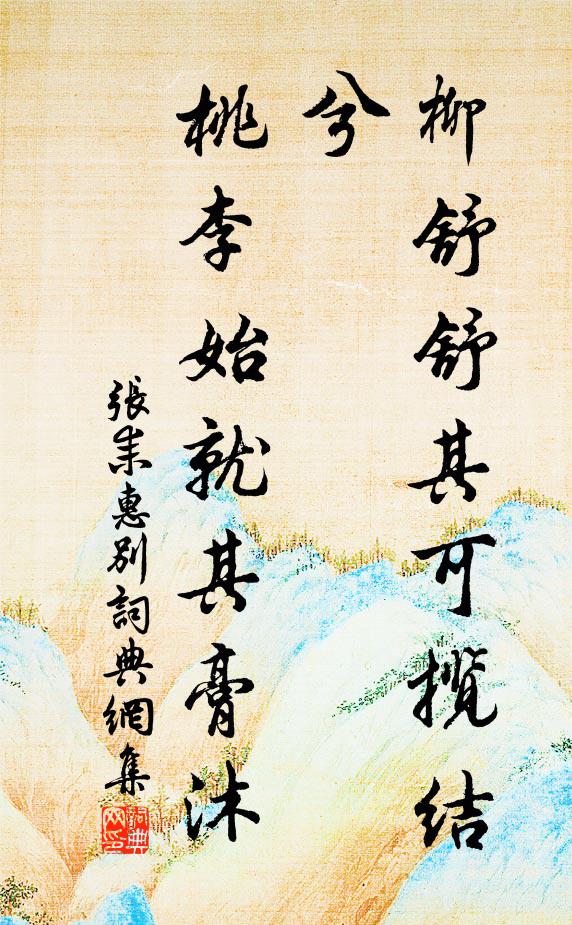 柳舒舒其可揽结
兮
桃李始就其膏沐
張耒惠别詞典網集
詞典
网印